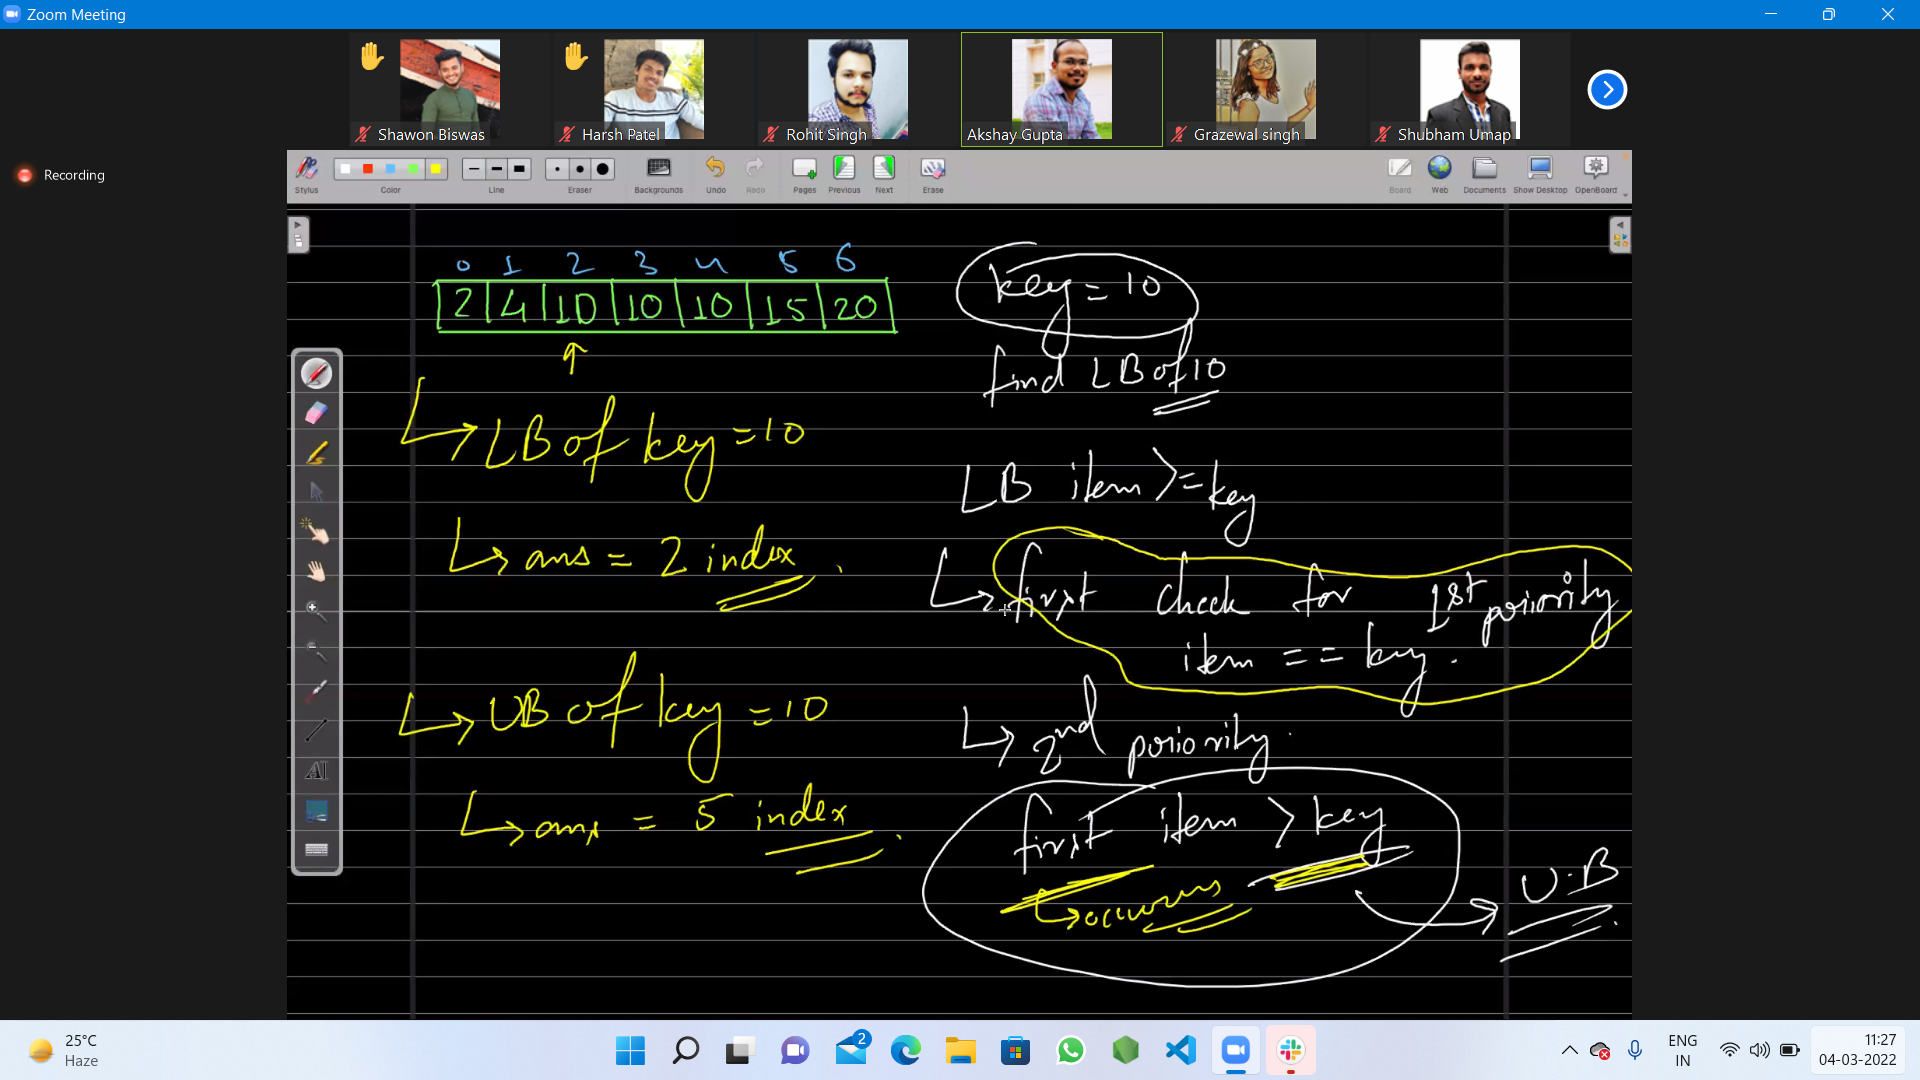 Zoom Meeting
Shawon Biswas
Harsh Patel
Rohit Singh
Akshay Gupta
Grazewal singh
Shubham Umap
Recording
Stylus
Color
Line
Eraser
Backgrounds
Undo
Redo
Pages
Previous
Next
Erase
Board
Web
Documents
Show Desktop
OpenBoard
0 1 2 3 4 5 6
2 4 10 10 10 15 20
key = 10
find LB of 10
LB of key = 10
LB item >= key
ans = 2 index.
first check for 1st priority
item == key.
UB of key = 10
2nd priority.
ans = 5 index.
first item > key
occurs
U.B
25°C
Haze
2
ENG
IN
11:27
04-03-2022